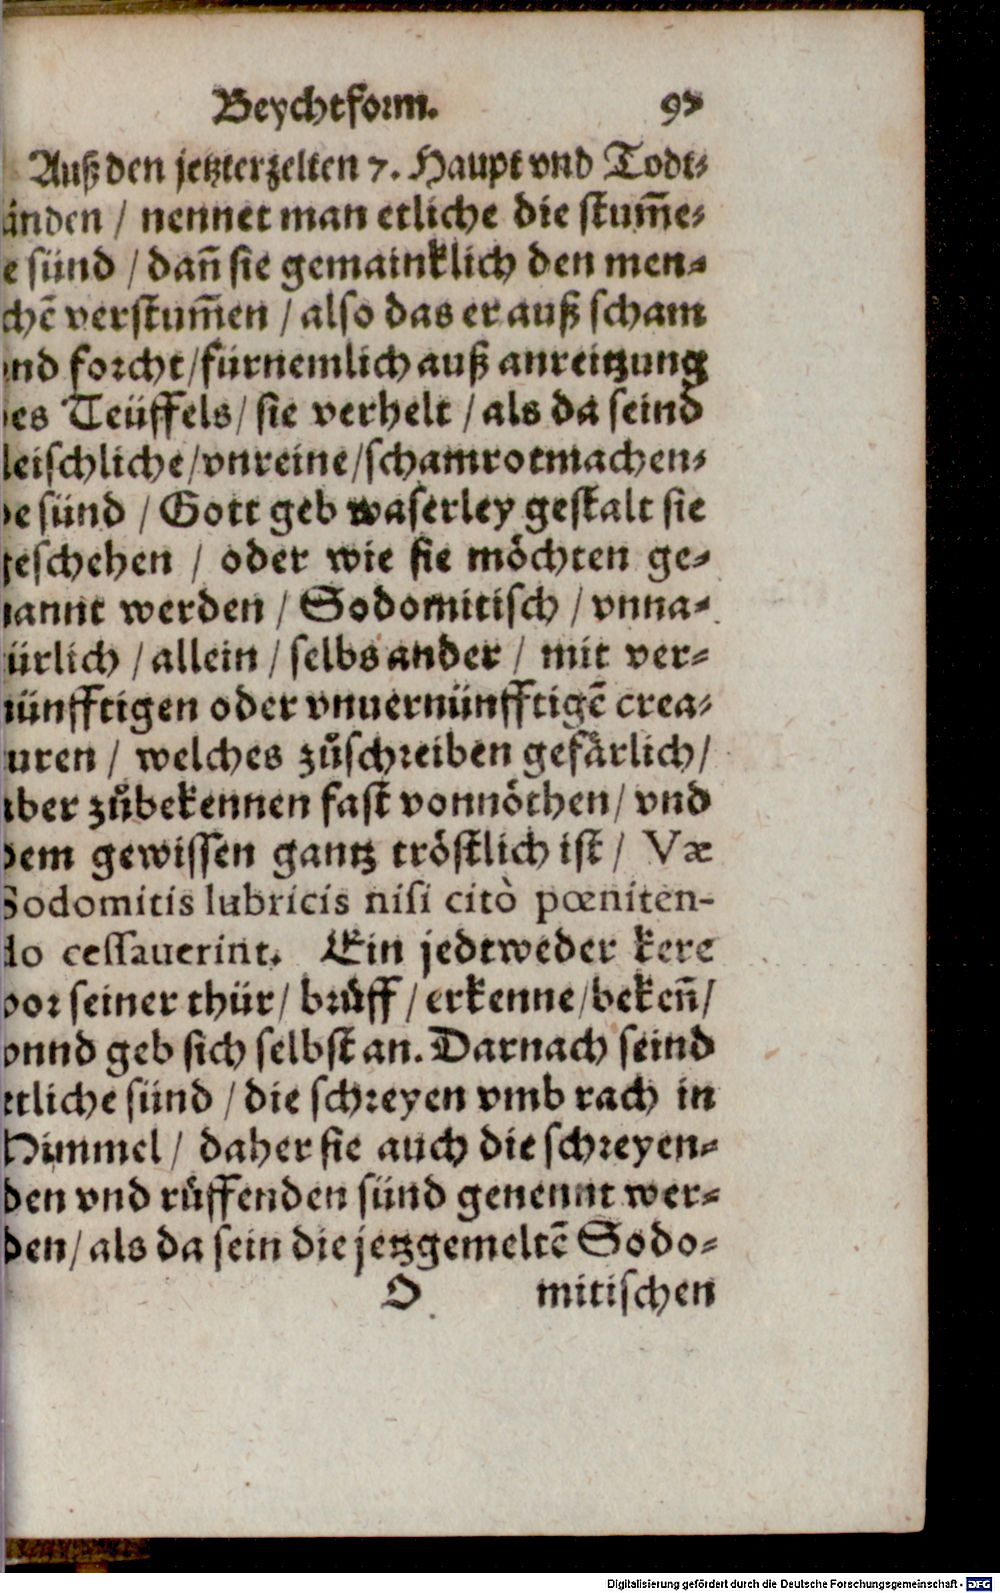 Beychtform. 97
Auß den jetzterzelten 7. Haupt vnd Todt⸗
änden / nennet man etliche die stum̃e⸗
e sünd / dañ sie gemainklich den men⸗
chẽ verstum̃en / also das er auß scham
nd forcht / fürnemlich auß anreitzung
es Teüffels / sie verhelt / als da seind
leischliche / vnreine / schamrotmachen⸗
e sünd / Gott geb waserley gestalt sie
geschehen / oder wie sie möchten ge⸗
nannt werden / Sodomitisch / vnna⸗
ürlich / allein / selbs ander / mit ver⸗
nünfftigen oder vnuernünfftigẽ crea⸗
uren / welches zůschreiben gefärlich /
aber zůbekennen fast vonnöthen / vnd
dem gewissen gantz tröstlich ist / Væ
Sodomitis lubricis nisi citò pœniten-
do cessauerint. Ein jedtweder kere
vor seiner thür / brüff / erkenne / bekeñ /
vnnd geb sich selbst an. Darnach seind
etliche sünd / die schreyen vmb rach in
Himmel / daher sie auch die schreyen⸗
den vnd rüffenden sünd genennt wer⸗
den / als da sein die jetzgemeltẽ Sodo⸗
O mitischen
Digitalisierung gefördert durch die Deutsche Forschungsgemeinschaft - DFG